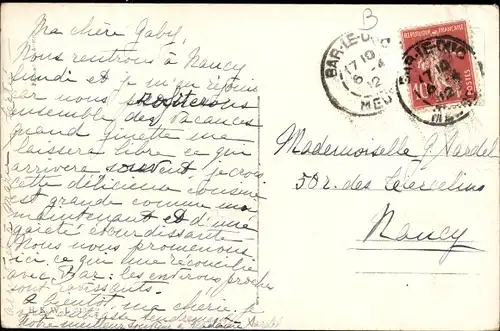 Ma chère Gaby.
Nous rentrons à Nancy
lundi et je m'en réjouis
car nous profiterons
ensemble des vacances
quand Ginette me
laissera libre ce qui
arrivera souvent je crois
cette délicieuse cousine
est grande comme moi
maintenant et d'une
gaieté étourdissante
Nous nous promenons
ici, ce qui me réconcilie
avec Bar: les environs proches
sont ravissants.
A bientôt, ma chérie je
t'embrasse tendrement
Notre meilleur souvenir à Madame Sardel
B
BAR-LE-DUC
17 10
6 - 4
12
MEUSE
REPUBLIQUE FRANÇAISE
POSTES
10
BAR-LE-DUC
17 10
6 - 4
12
Mademoiselle G. Sardel
50 r. des Tiercelins
Nancy